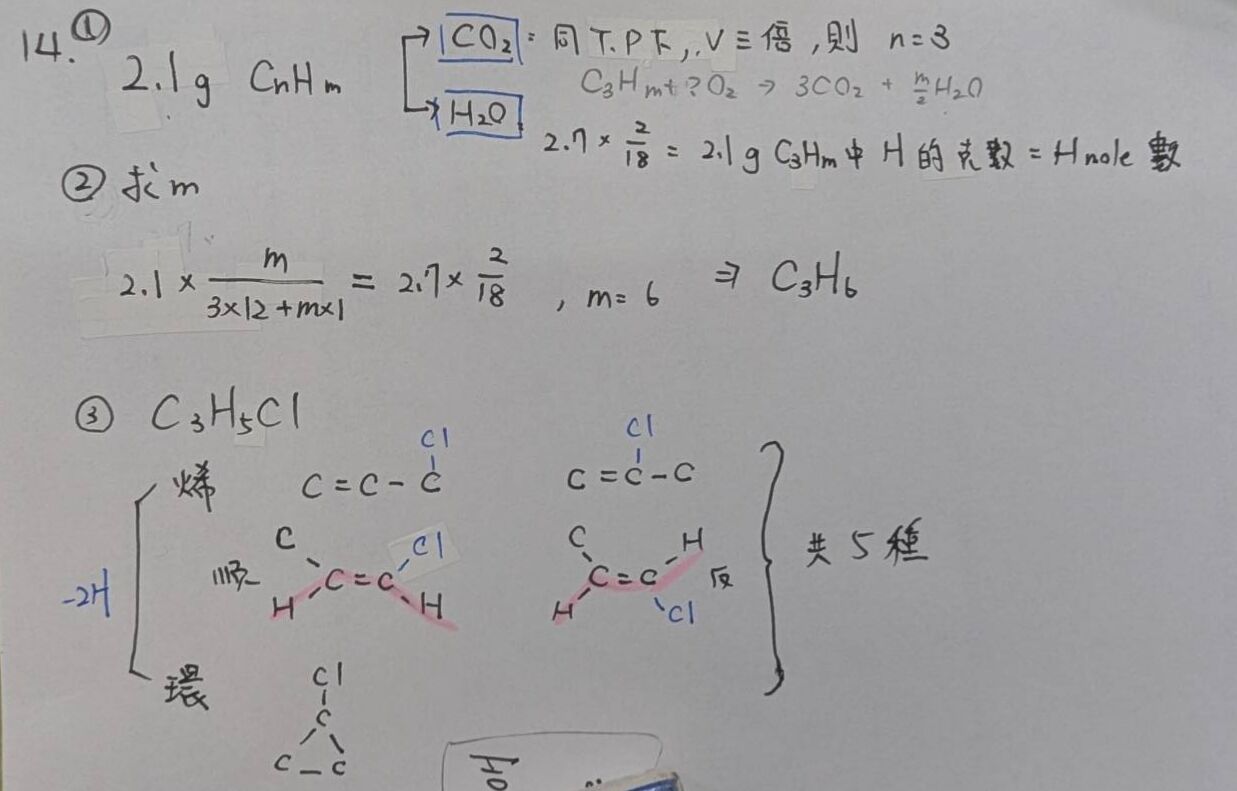 14. ① 2.1g CnHm
CO₂ : 同 T.P下, V三倍, 則 n=3
C₃Hm + ?O₂ → 3CO₂ + m/2 H₂O
H₂O
2.7 × 2/18 = 2.1g C₃Hm中 H 的克數 = H mole 數
② 求m
2.1 × m/(3×12+m×1) = 2.7 × 2/18 , m= 6 ⇒ C₃H₆
③ C₃H₅Cl
Cl Cl
烯 C=C-C C=C-C
C Cl C H
-2H 順 C=C C=C 反 共5種
H H H Cl
環 Cl
C
C-C